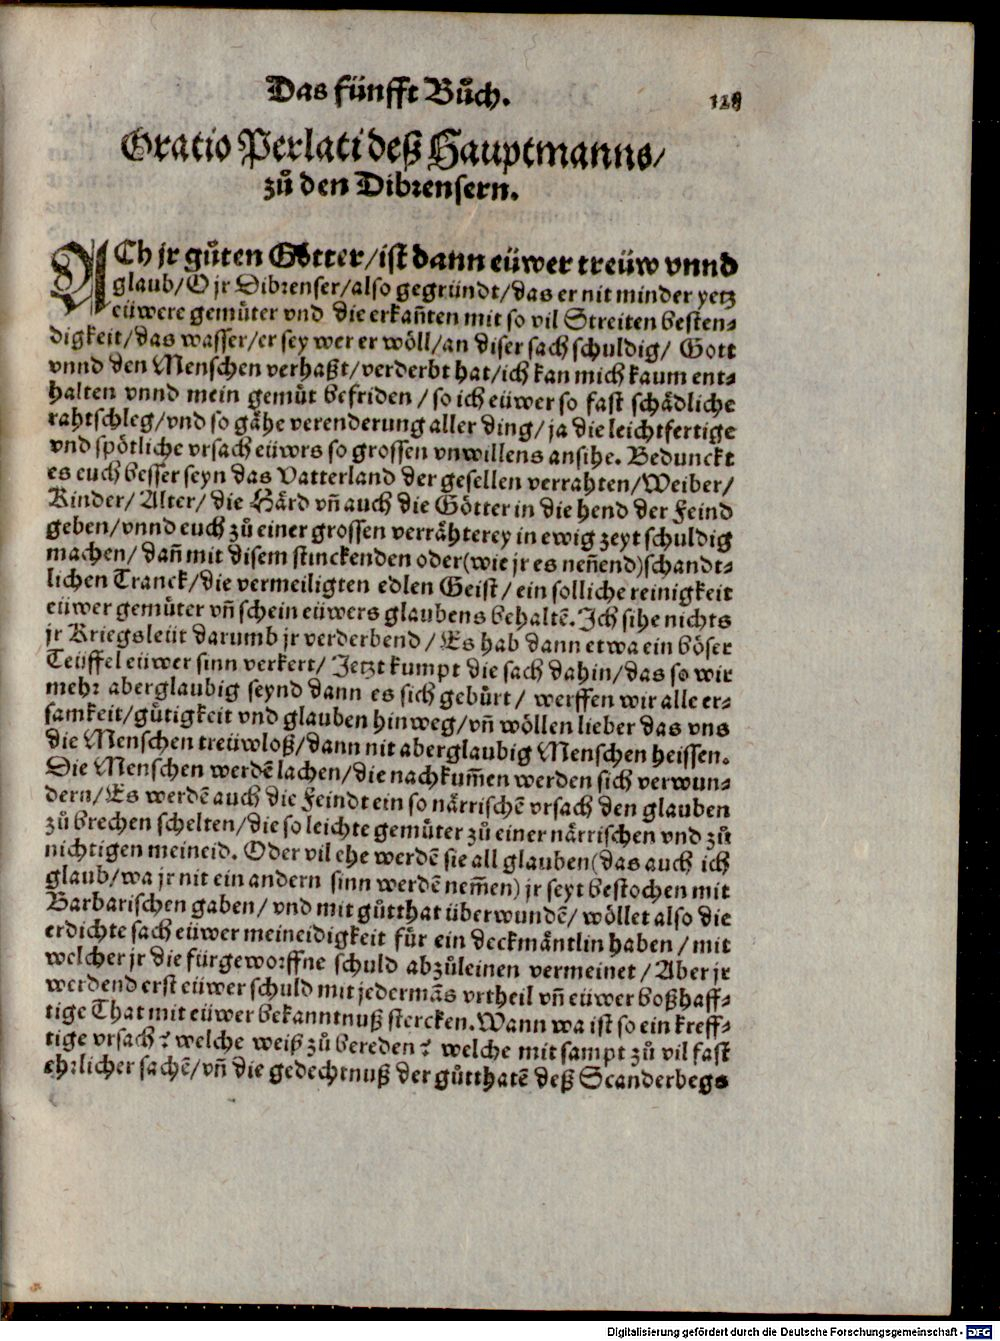 Das fünfft Bůch.
128
Oratio Perlati deß Hauptmanns/
zů den Dibrensern.
ACh jr gůten Götter/ist dann eüwer treüw vnnd
glaub/O jr Dibrenser/also gegründt/das er nit minder yetz
eüwere gemüter vnd die erkañten mit so vil Streiten besten⸗
digkeit/das wasser/er sey wer er wöll/an diser sach schuldig/ Gott
vnnd den Menschen verhaßt/verderbt hat/ich kan mich kaum ent⸗
halten vnnd mein gemüt befriden / so ich eüwer so fast schädliche
rahtschleg/vnd so gähe verenderung aller ding/ja die leichtfertige
vnd spötliche vrsach eüwrs so grossen vnwillens ansihe. Bedunckt
es euch besser seyn das Vatterland der gesellen verrahten/Weiber/
Kinder/ Alter/ die Härd vñ auch die Götter in die hend der Feind
geben/vnnd euch zů einer grossen verrähterey in ewig zeyt schuldig
machen/ dañ mit disem stinckenden oder(wie jr es neñend)schandt⸗
lichen Tranck/die vermeiligten edlen Geist/ ein solliche reinigkeit
eüwer gemüter vñ schein eüwers glaubens behaltẽ. Ich sihe nichts
jr Kriegsleüt darumb jr verderbend / Es hab dann etwa ein böser
Teüffel eüwer sinn verkert/ Jetzt kumpt die sach dahin/das so wir
mehr aberglaubig seynd dann es sich gebürt/ werffen wir alle er⸗
samkeit/gütigkeit vnd glauben hinweg/vñ wöllen lieber das vns
die Menschen treüwloß/dann nit aberglaubig Menschen heissen.
Die Menschen werdẽ lachen/die nachkum̃en werden sich verwun⸗
dern/Es werdẽ auch die Feindt ein so närrischẽ vrsach den glauben
zů brechen schelten/die so leichte gemüter zů einer närrischen vnd zů
nichtigen meineid. Oder vil ehe werdẽ sie all glauben(das auch ich
glaub/wa jr nit ein andern sinn werdẽ nem̃en) jr seyt bestochen mit
Barbarischen gaben/ vnd mit gůtthat überwundẽ/ wöllet also die
erdichte sach eüwer meineidigkeit für ein deckmäntlin haben / mit
welcher jr die fürgeworffne schuld abzůleinen vermeinet / Aber jr
werdend erst eüwer schuld mit jedermãs vrtheil vñ eüwer boßhaff⸗
tige That mit eüwer bekanntnuß stercken. Wann wa ist so ein kreff⸗
tige vrsach? welche weiß zů bereden? welche mit sampt zů vil fast
ehrlicher sachẽ/vñ die gedechtnuß der gůtthatẽ deß Scanderbegs
Digitalisierung gefördert durch die Deutsche Forschungsgemeinschaft - DFG